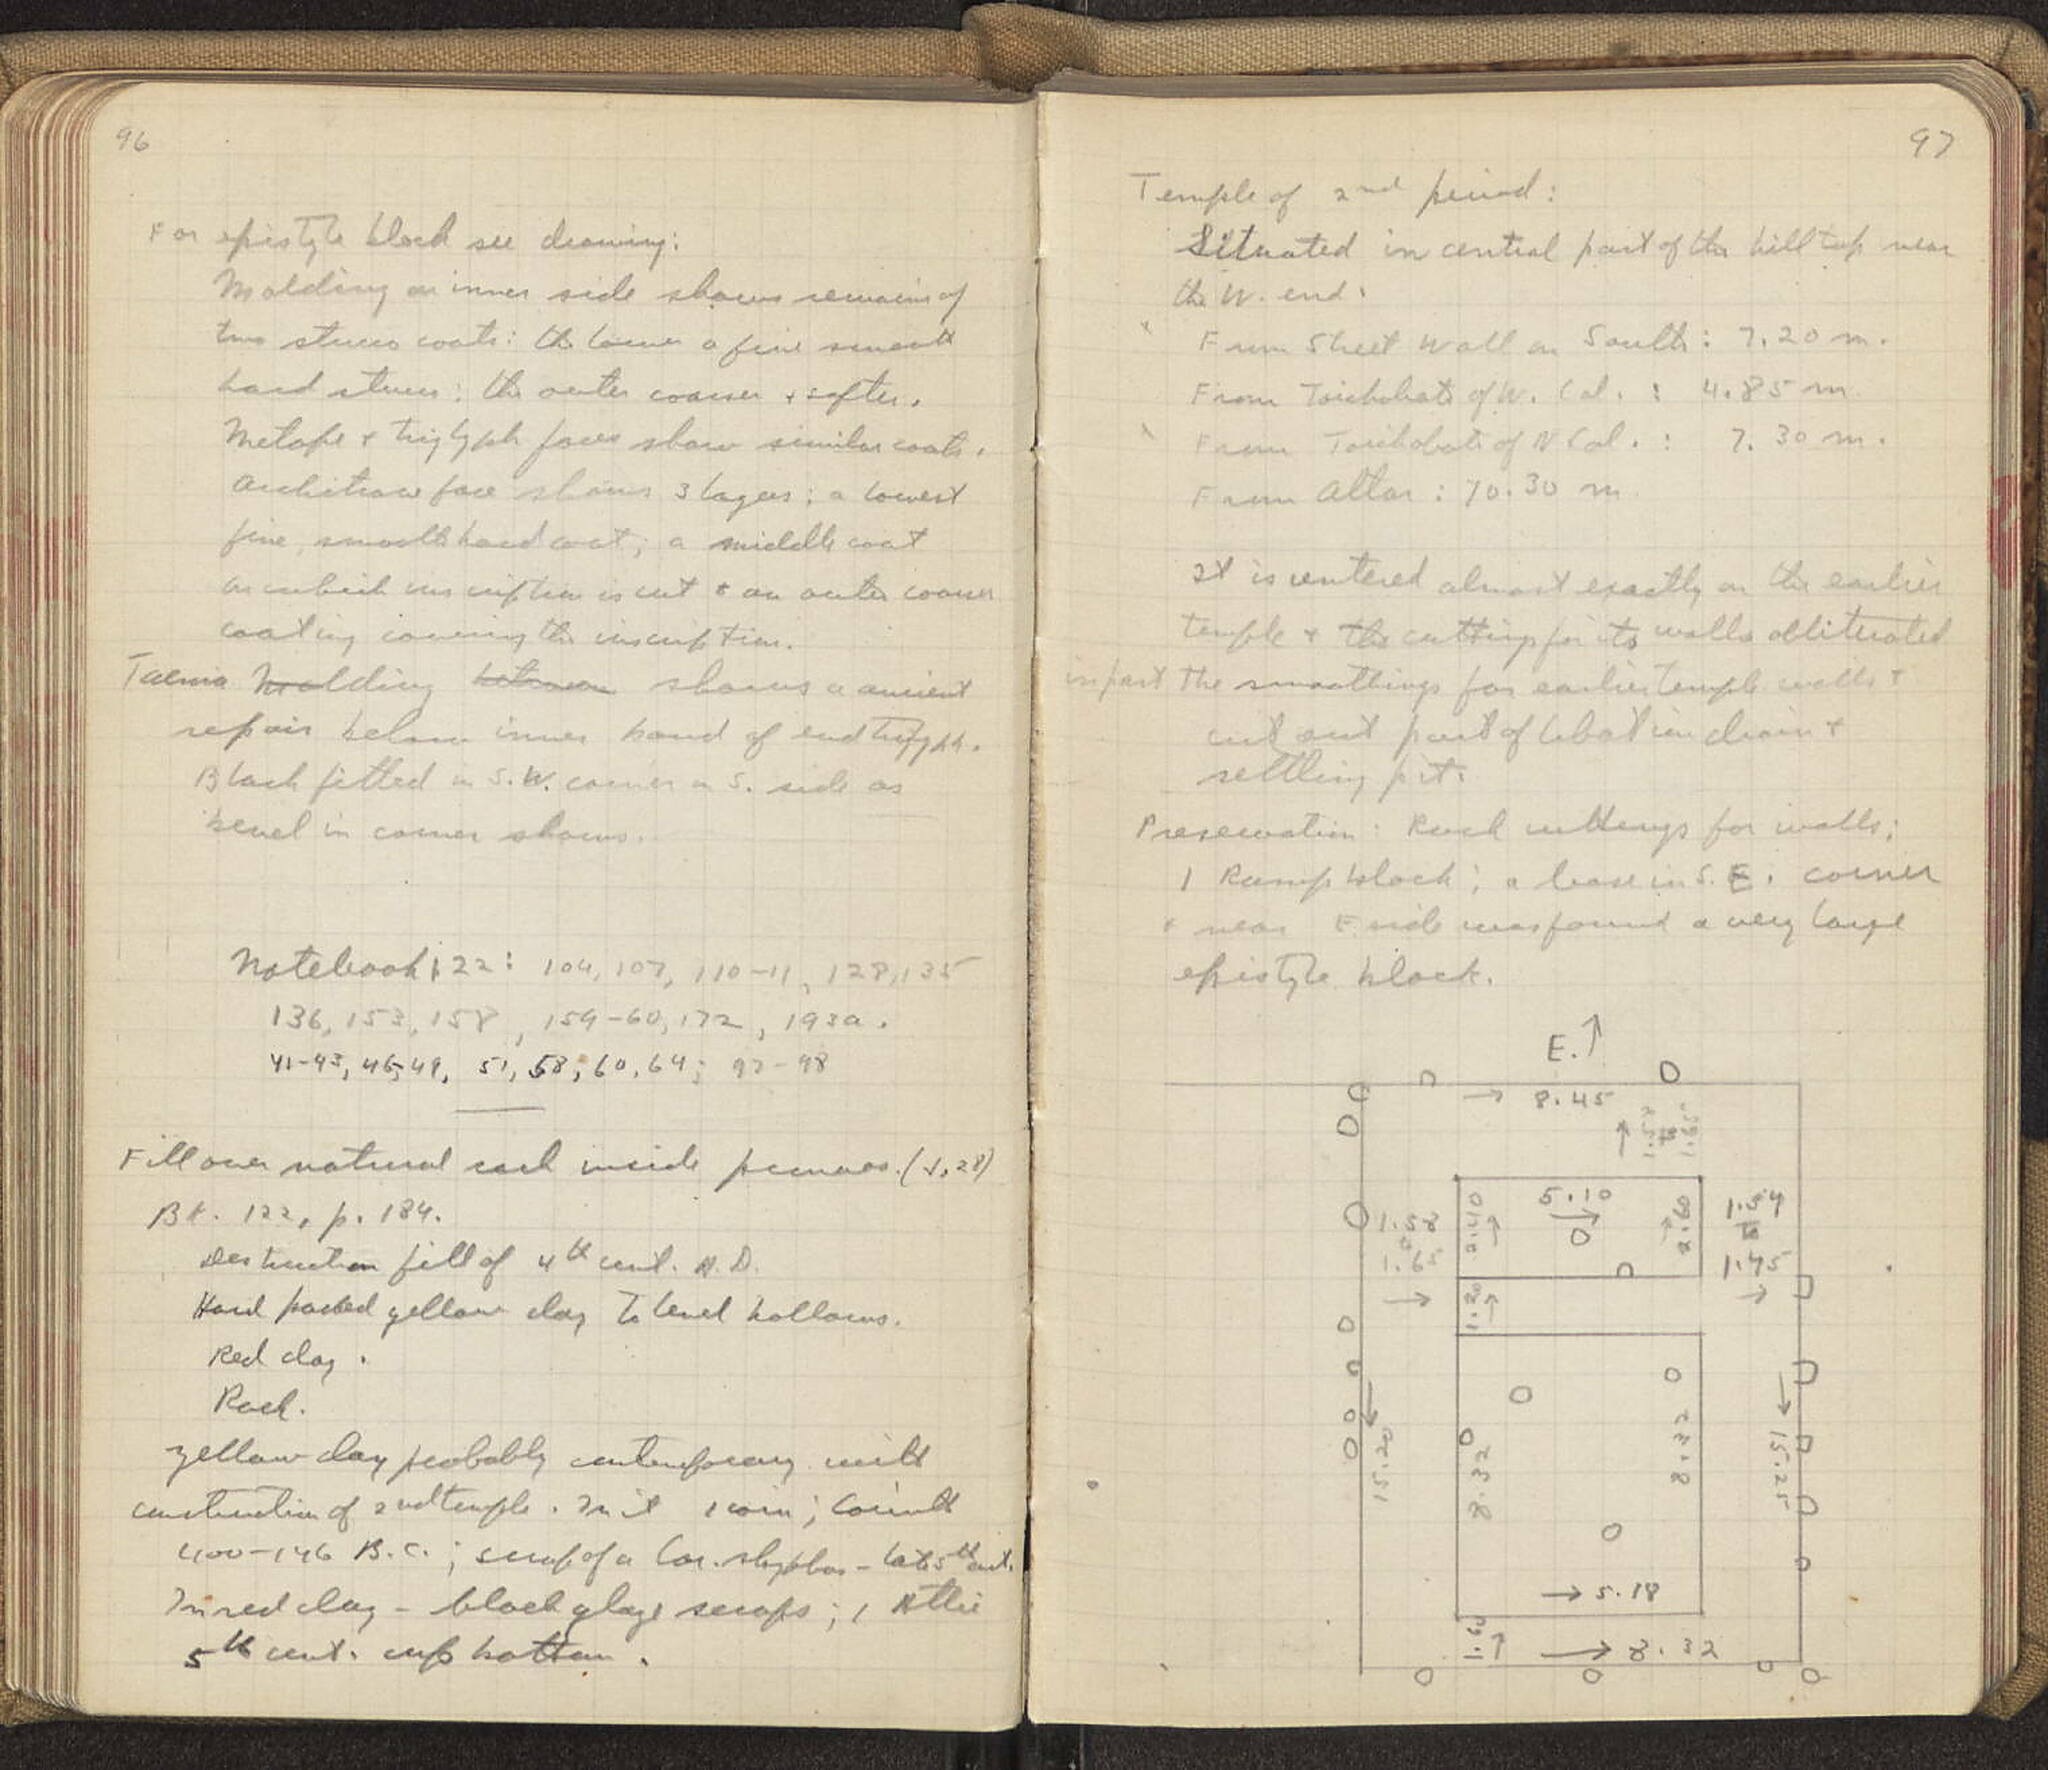 96
For epistyle block see drawing:
Molding on inner side shows remains of
two stucco coats: the lower a fine smooth
hard stucco: the outer coarser + softer.
Metope + triglyph faces show similar coats.
Architrave face shows 3 layers: a lowest
fine, smooth hard coat; a middle coat
on which inscription is cut + an outer coarser
coating covering the inscription.
Taenia molding between shows a ancient
repair below inner band of end triglyph.
Block fitted in S.W. corner on S. side as
bevel in corner shows.
Notebook 122: 104, 107, 110-11, 128, 135
136, 153, 158, 159-60, 172, 193a.
41-43, 46-49, 51, 58; 60, 64; 97-98
Fill over natural rock inside pronaos. (J, 28)
BK. 122, p. 184.
Destruction fill of 4th cent. A.D.
Hard packed yellow clay to level hollows.
Red clay.
Rock.
Yellow clay probably contemporary with
construction of 2nd temple. In it 1 coin; Corinth
400-146 B.C.; scrap of a Cor. skyphos - late 5th cent.
In red clay - black glaze scraps; 1 Attic
5th cent. cup bottom.
97
Temple of 2nd period:
Situated in central part of the hill top near
the W. end.
x From Street Wall on South: 7.20 m.
From Toichobate of W. Col.: 4.85 m
x From Toichobate of N Col.: 7.30 m.
From Altar: 70.30 m
It is centered almost exactly on the earlier
temple + the cuttings for its walls obliterated
in part the smoothings for earlier temple walls +
cut out part of libation drain +
settling pit.
Preservation: Rock cuttings for walls;
1 Ramp block; a base in S.E. corner
+ near E side was found a very large
epistyle block.
E. ↑
→ 8.45
↑ 1.58 to 1.65
5.10
→
2.40 ↑
→ 2.60
1.58
to
1.65
→
1.54
to
1.45
→
1.20 ↑
← 15.20
8.32
8.32
← 15.51
→ 5.18
1.60 ↑
→ 8.32